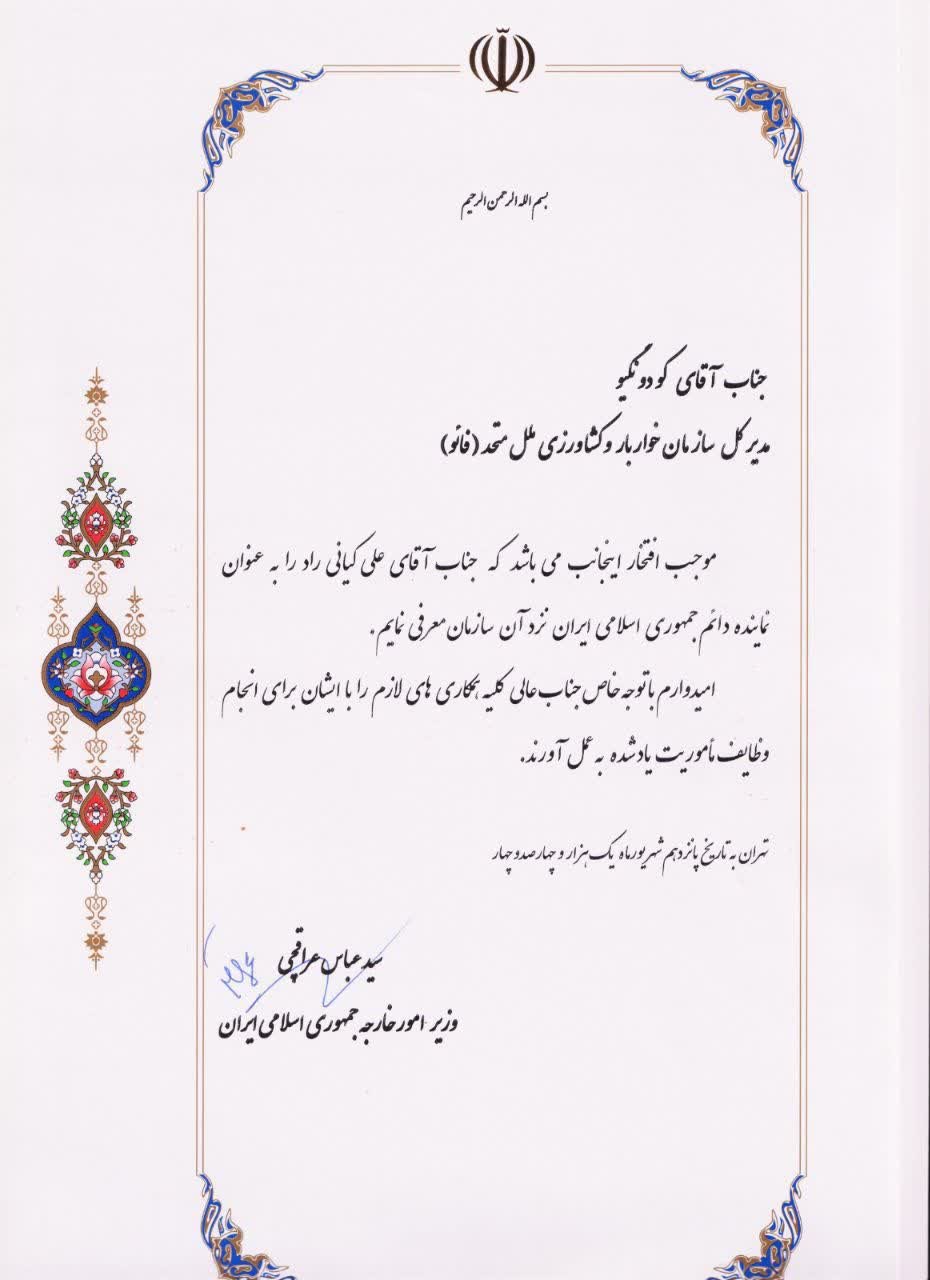 بسم الله الرحمن الرحیم
جناب آقای کو دونگیو
مدیر کل سازمان خواربار و کشاورزی ملل متحد (فائو)
موجب افتخار اینجانب می باشد که جناب آقای علی کیانی راد را به عنوان
نماینده دائم جمهوری اسلامی ایران نزد آن سازمان معرفی نمایم.
امیدوارم با توجه خاص جناب عالی کلیه همکاری های لازم را با ایشان برای انجام
وظایف مأموریت یاد شده به عمل آورند.
تهران به تاریخ پانزدهم شهریور ماه یک هزار و چهارصد و چهار
سید عباس عراقچی
وزیر امور خارجه جمهوری اسلامی ایران